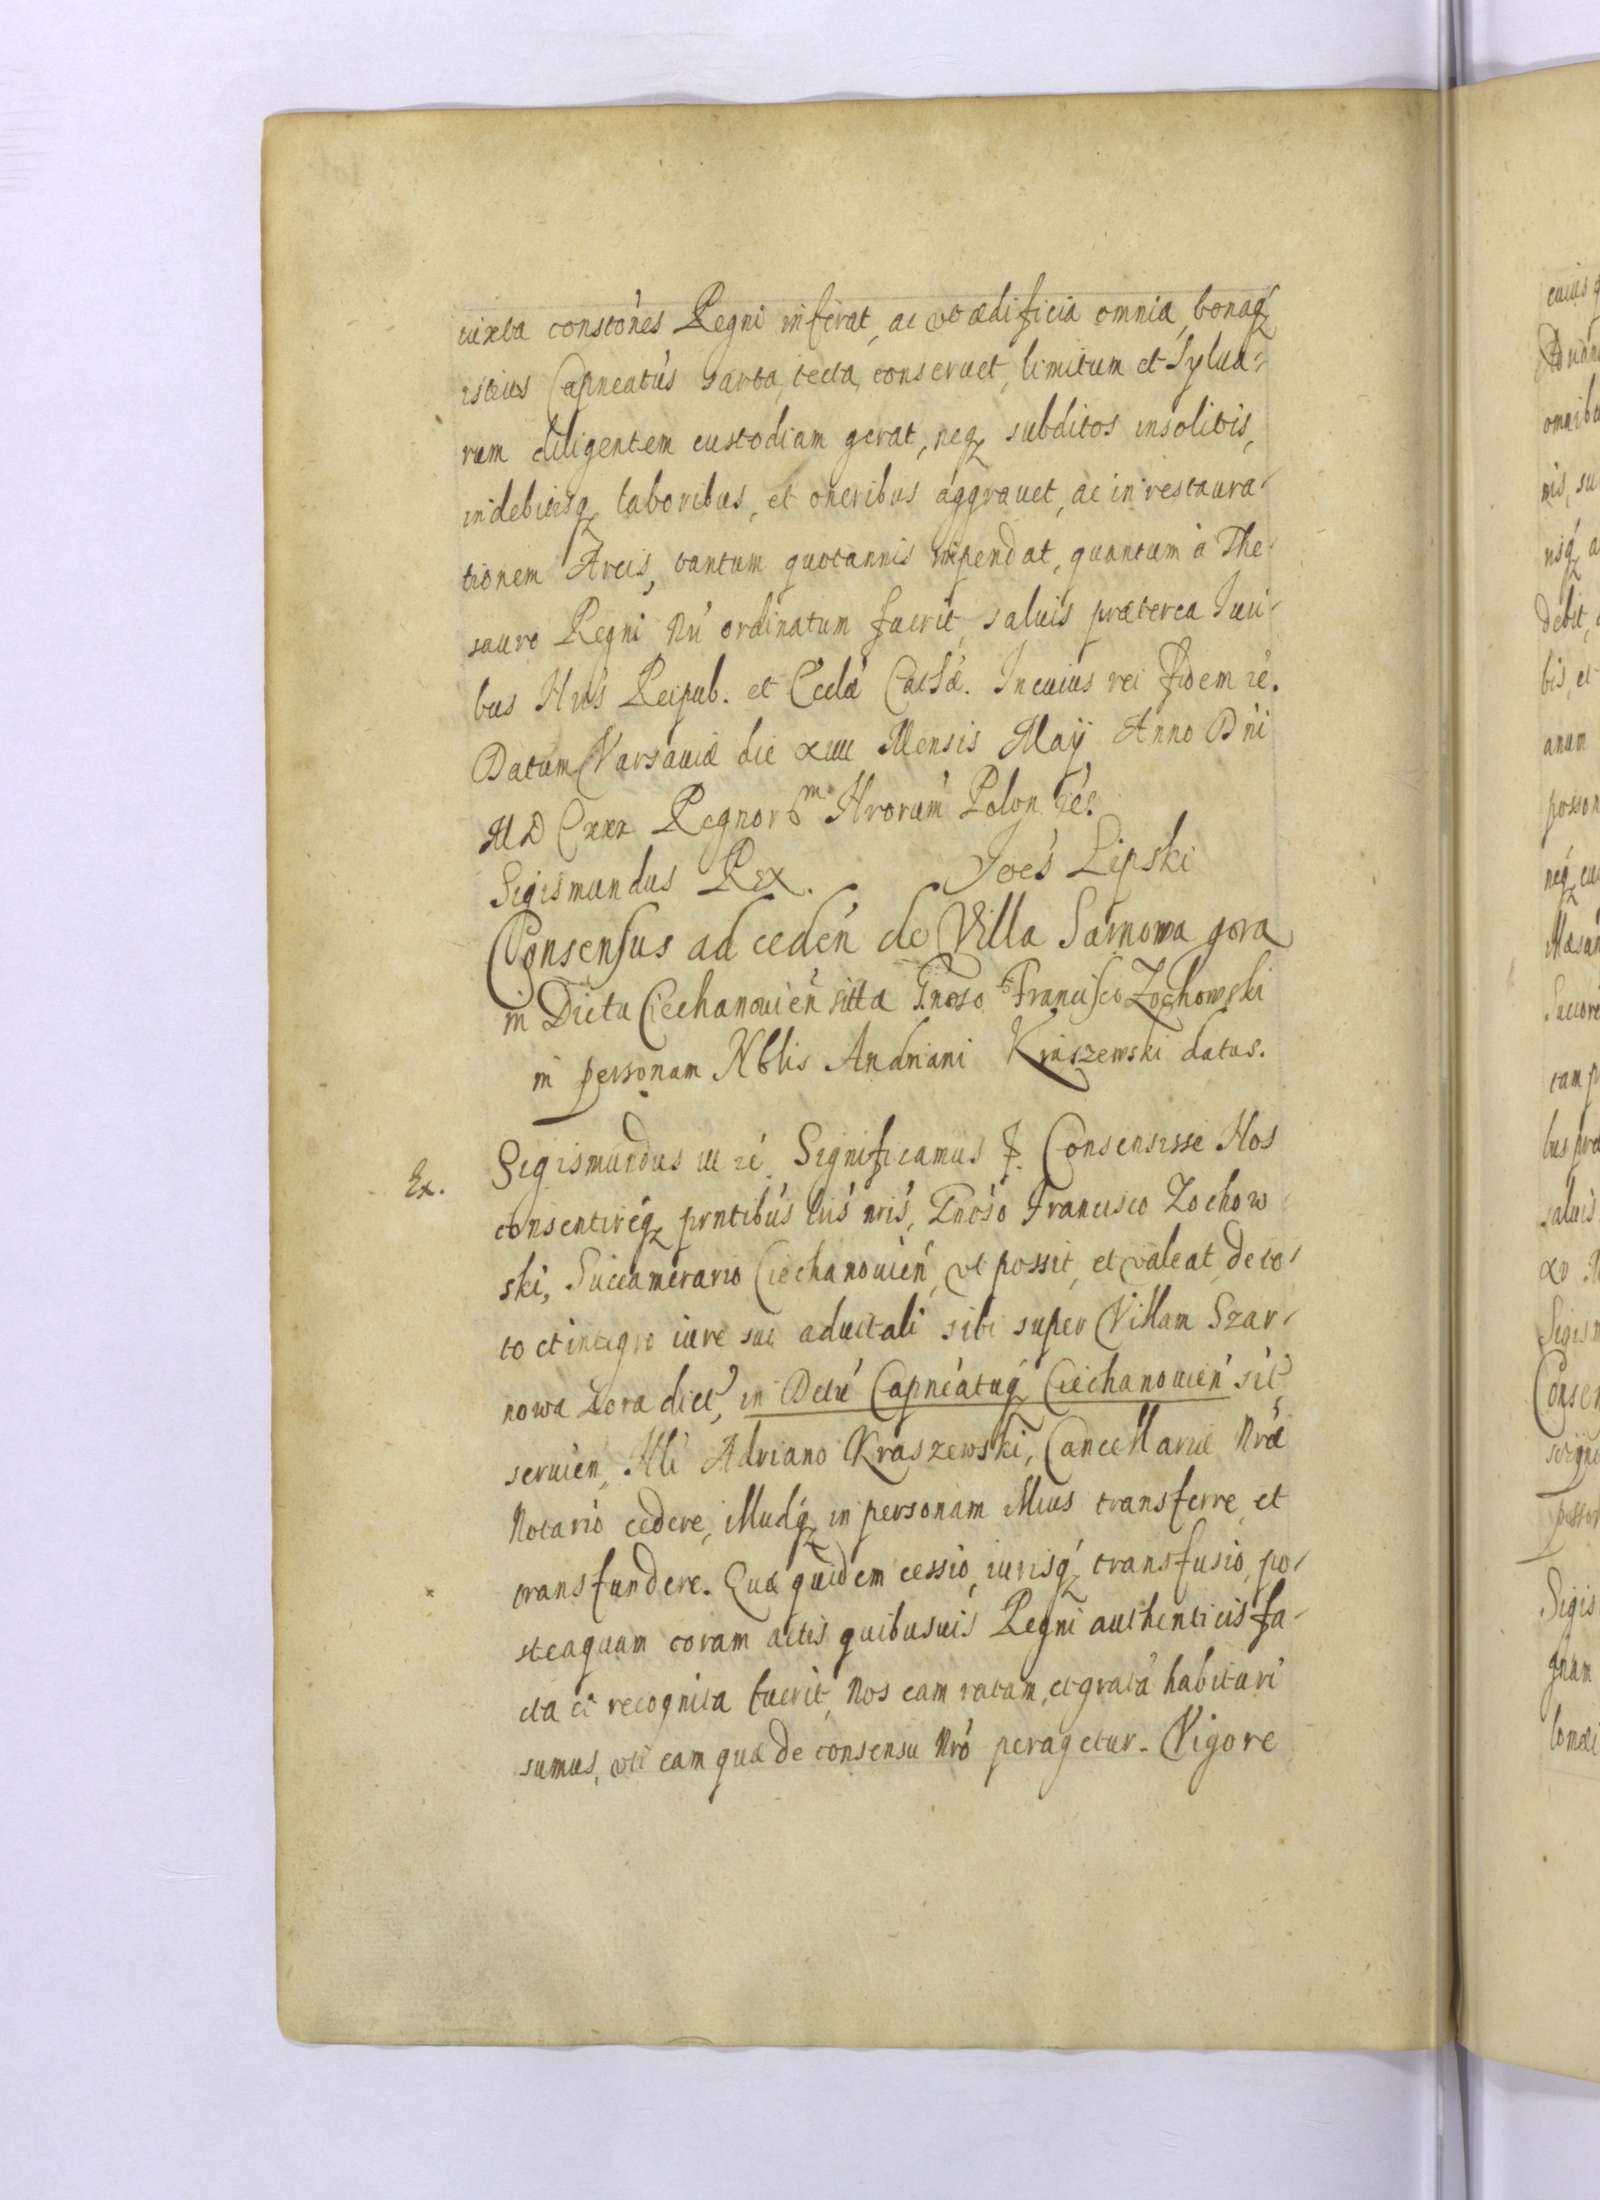 iuxta constönes Regni inferat, ac vt ædificia omnia, bonaq́
istius Capneatús sarta, tecta, conseruet, limitum et Sylua-
rum diligentem custodiam gerat, neq subditos insolitis,
indebitisq laboribus, et oneribus aggrauet, ac in restaura-
tionem Arcis, tantum quotannis impendat, quantum à The-
sauro Regni Nrí ordinatum fuerit, saluis præterea Iuri-
bus Nris Reipub. et Ecclæ Catlæ. In cuius rei fidem zé.
Datum Varsauiæ die xiiii Mensis Maÿ Anno Dńi
MDCxxx Regnor m Nrorum Polon zé.
Sigismundus Rex. Joes Lipski
Consensus ad cedeń de Villa Sarnowa gora
in Dictu Ciechanouień sitta Gnoso Francisco Zochowski
in personam Nblis Andriani Kraszewski datus.
Ex. Sigismundus iii zé Significamus &. Consensisse Nos
consentireq́ prntibús lrís nrís, Gnóso Francisco Zochow-
ski, Succamerario Ciechanouień, vt possit, et valeat de to-
to et integro iure suo aduitali sibi super Villam Szar-
nowa Zora dict, in Dctú Capneátuq́ Ciechanouień sít
seruien, Nli Adriano Kraszewski, Cancellariæ Nræ
Notario cedere, illudq́ in personam illius transferre, et
transfundere. Quæ quidem cessio, iurisq́ transfusio, po-
steaquam coram actis quibusuis Regni authenticis fa-
cta et recognita fuerit, Nos eam ratam, et gratá habituri
sumus, vti eam quæ de consensu Nró peragetur. Vigore